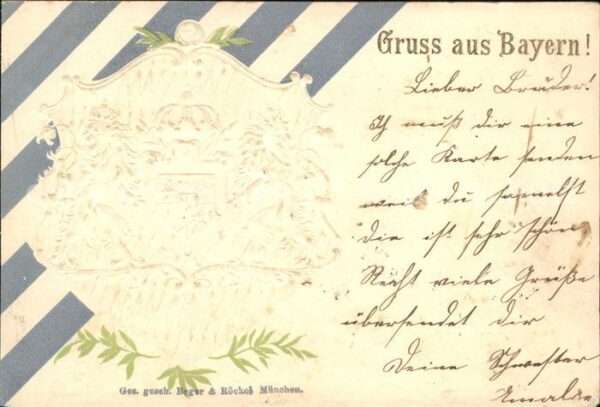 Gruss aus Bayern!
Lieber Bruder!
Ich muß dir eine
solche Karte senden
weil du samelst
die ist sehr schön
Recht viele Grüße
übersendet dir
Deine Schwester
Ges. gesch. Beger & Röckel München.